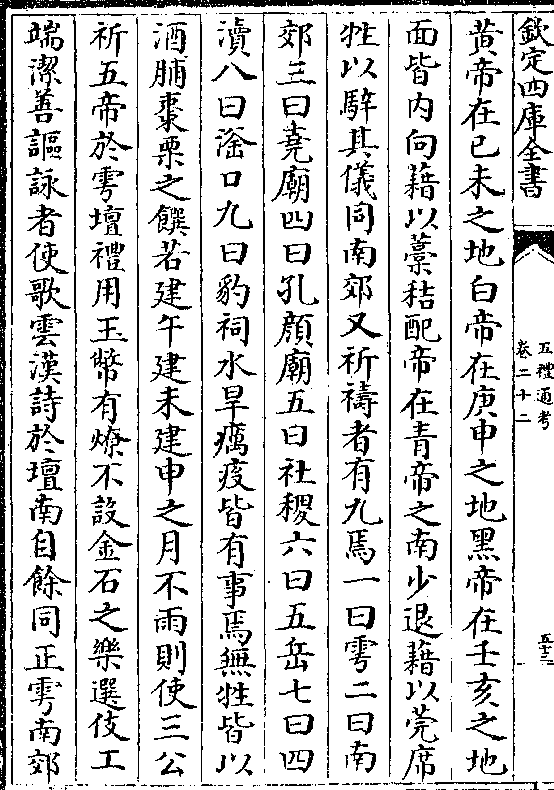 欽定四庫全書
五禮通考
卷二十二
五十二
黄帝在已未之地白帝在庚申之地黑帝在壬亥之地
面皆内向藉以藁秸配帝在青帝之南少退藉以莞席
牲以騂其儀同南郊又祈禱者有九焉一曰雩二曰南
郊三曰堯廟四曰孔顔廟五曰社稷六曰五岳七曰四
瀆八曰滏口九曰豹祠水旱癘疫皆有事焉無牲皆以
酒脯棗栗之饌若建午建未建申之月不雨則使三公
祈五帝於雩壇禮用玉幣有燎不設金石之樂選伎工
端潔善謳詠者使歌雲漢詩於壇南自餘同正雩南郊